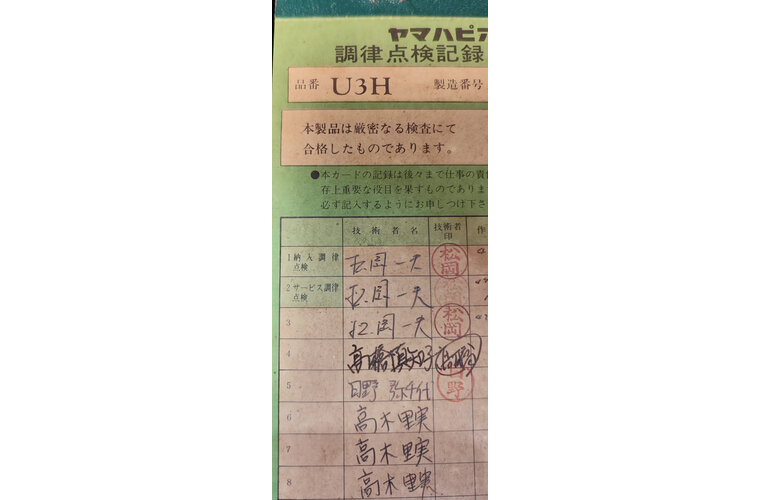 ヤマハピア
調律点検記録
品番 U3H 製造番号
本製品は厳密なる検査にて
合格したものであります。
●本カードの記録は後々まで仕事の責
存上重要な役目を果すものでありま
必ず記入するようにお申しつけ下さ
技術者名 技術者印 作
1 納入調律点検 松岡一夫 松岡
2 サービス調律点検 松岡一夫
3 松岡一夫 松岡
4 高橋真知子 高橋
5 日野 弥千代 日野
6 高木里実
7 高木里実
8 高木里実